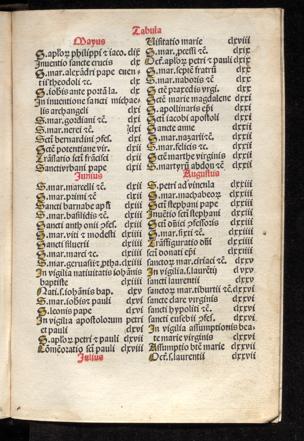 Tabula
Mayus
S. aploꝝ philippi ⁊ iaco. dix
Inuentio sancte crucis dx
S. mar. alexādri pape euen-
tii theodoli ⁊c. dx
S. iohis ante portā la.
In inuentione sancti michae-
lis archangeli dxi
S. mar. gordiani ⁊c. dxi
S. mar. nerei ⁊c. dxi
Sctī bernardini ɔfes. dxii
Scte potentiane vir. dxii
Trāslatio sctī frācisci dxii
Sancti vrbani pape dxii
Junius
S. mar. marcelli ⁊c. dxii
S. mar. primi ⁊c dxii
Sancti barnabe aptī dxii
S. mar. basilidis ⁊c. dxii
Sancti anthonii ɔfes. dxii
S. mar. viti ⁊ modesti dxiii
Sancti siluerii dxiii
S. mar. marci ⁊c. dxiii
S. mar. geruasii ⁊ ptha. dxiii
In vigilia natiuitatis iohānis
baptiste dxiii
Nati. s. iohānis bap. dxv
S. mar. iohis ⁊ pauli dxvi
S. leonis pape dxvi
In vigilia apostolorum petri
et pauli dxvi
S. aploꝝ petri ⁊ pauli dxvii
Cōmēoratio sctī pauli dxviii
Julius
Uisitatio marie dxviii
S. mar. ꝓcessi ⁊c. dxix
Oct. aploꝝ petri ⁊ pauli dxix
S. mar. septē fratrū dxx
S. mar. naboris ⁊c dxx
Scte praxedis virgi. dxx
Scte marie magdalene dxxi
S. apollinaris epī dxxi
Sctī iacobi apostoli dxxi
Sancte anne dxxi
S. mar. nazarii ⁊c. dxxi
S. mar. felicis ⁊c. dxxi
Scte marthe virginis dxxii
S. martyrū abdon ⁊c dxxii
Augustus
S. petri ad vincula dxxii
S. mar. machabeoꝝ dxxii
Sctī stephani pape dxxii
Inuētio sctī stephani dxxii
Sctī dn̄ici ɔfessoris dxxiii
S. mar. sixti ⁊c. dxxiii
Trāsfiguratio dn̄i dxxiii
Sctī donati epī dxxiii
sanctoꝝ mar. ciriaci ⁊c. dxxiii
In vigilia s. laurētij dxxv
sancti laurentii dxxv
sanctoꝝ mar. tiburtii ⁊c. dxxvi
sancte clare virginis dxxvi
sancti hypoliti ⁊c dxxvi
sancti eusebii ɔfes. dxxvi
In vigilia assumptionis bea-
te marie virginis dxxvi
Assumptio btē marie dxxvii
Oct. s. laurentii dxxvii